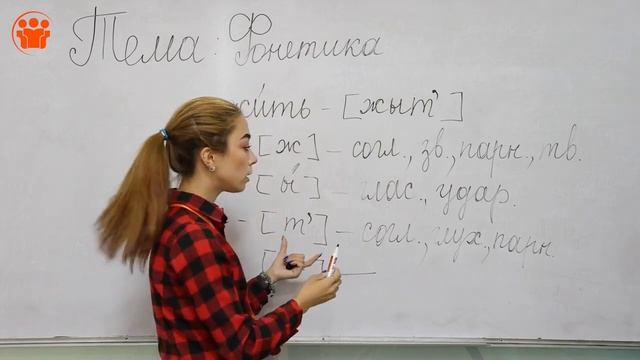 Тема: Фонетика
жи́ть - [жыт']
[ж] - согл., зв., парн., тв.
[ы́] - глас., удар.
- [т'] - согл., глух., парн.